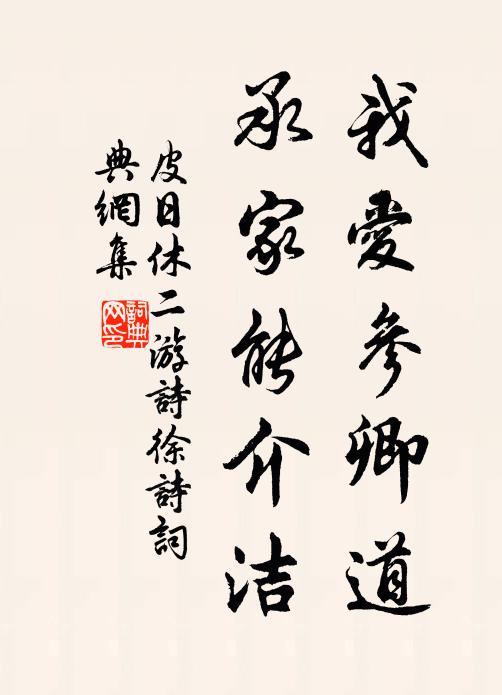 我愛參卿道
承家能介洁
皮日休二游詩徐詩詞
典網集
詞典
网印